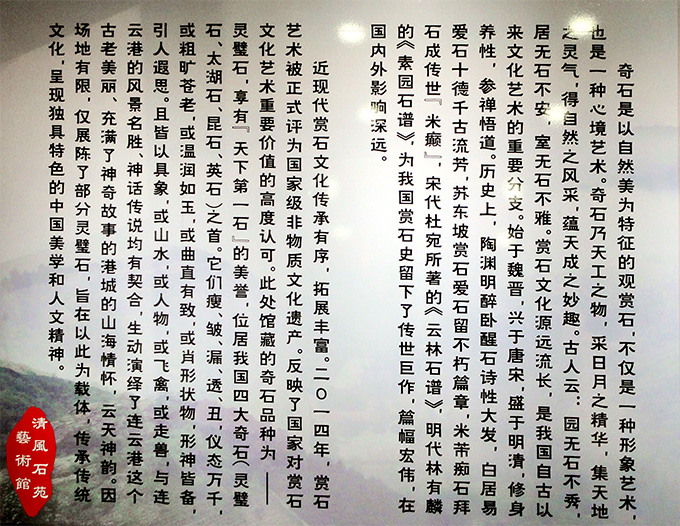 奇石是以自然美为特征的观赏石，不仅是一种形象艺术，
也是一种心境艺术。奇石乃天工之物，采日月之精华，集天地
之灵气，得自然之风采，蕴天成之妙趣。古人云：园无石不秀，
居无石不安，室无石不雅。赏石文化源远流长，是我国自古以
来文化艺术的重要分支。始于魏晋，兴于唐宋，盛于明清，修身
养性，参禅悟道。历史上，陶渊明醉卧醒石诗性大发，白居易
爱石十德千古流芳，苏东坡赏石爱石留不朽篇章，米芾痴石拜
石成传世『米癫』，宋代杜宛所著的《云林石谱》，明代林有麟
的《素园石谱》，为我国赏石史留下了传世巨作，篇幅宏伟，在
国内外影响深远。
近现代赏石文化传承有序，拓展丰富。二〇一四年，赏石
艺术被正式评为国家级非物质文化遗产。反映了国家对赏石
文化艺术重要价值的高度认可。此处馆藏的奇石品种为——
灵璧石，享有『天下第一石』的美誉，位居我国四大奇石（灵璧
石、太湖石、昆石、英石）之首。它们瘦、皱、漏、透、丑，仪态万千，
或粗旷苍老，或温润如玉，或曲直有致，或肖形状物，形神皆备，
引人遐思。且皆以具象，或山水，或人物，或飞禽，或走兽，与连
云港的风景名胜、神话传说均有契合，生动演绎了连云港这个
古老美丽、充满了神奇故事的港城的山海情怀，云天神韵。因
场地有限，仅展陈了部分灵璧石，旨在以此为载体，传承传统
文化，呈现独具特色的中国美学和人文精神。
清風石苑
藝術館